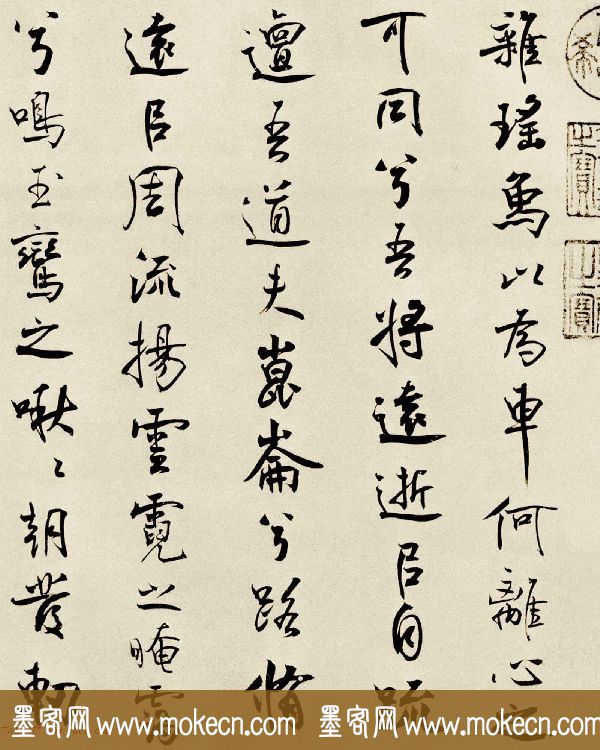 雜瑤象以為車何離心之
可同兮吾將遠逝㠯自疏
邅吾道夫崑崙兮路脩
遠㠯周流揚雲霓之晻靄
兮鳴玉鸞之啾〻朝發軔
墨客网 www.mokecn.com 墨客网 www.mokecn.com